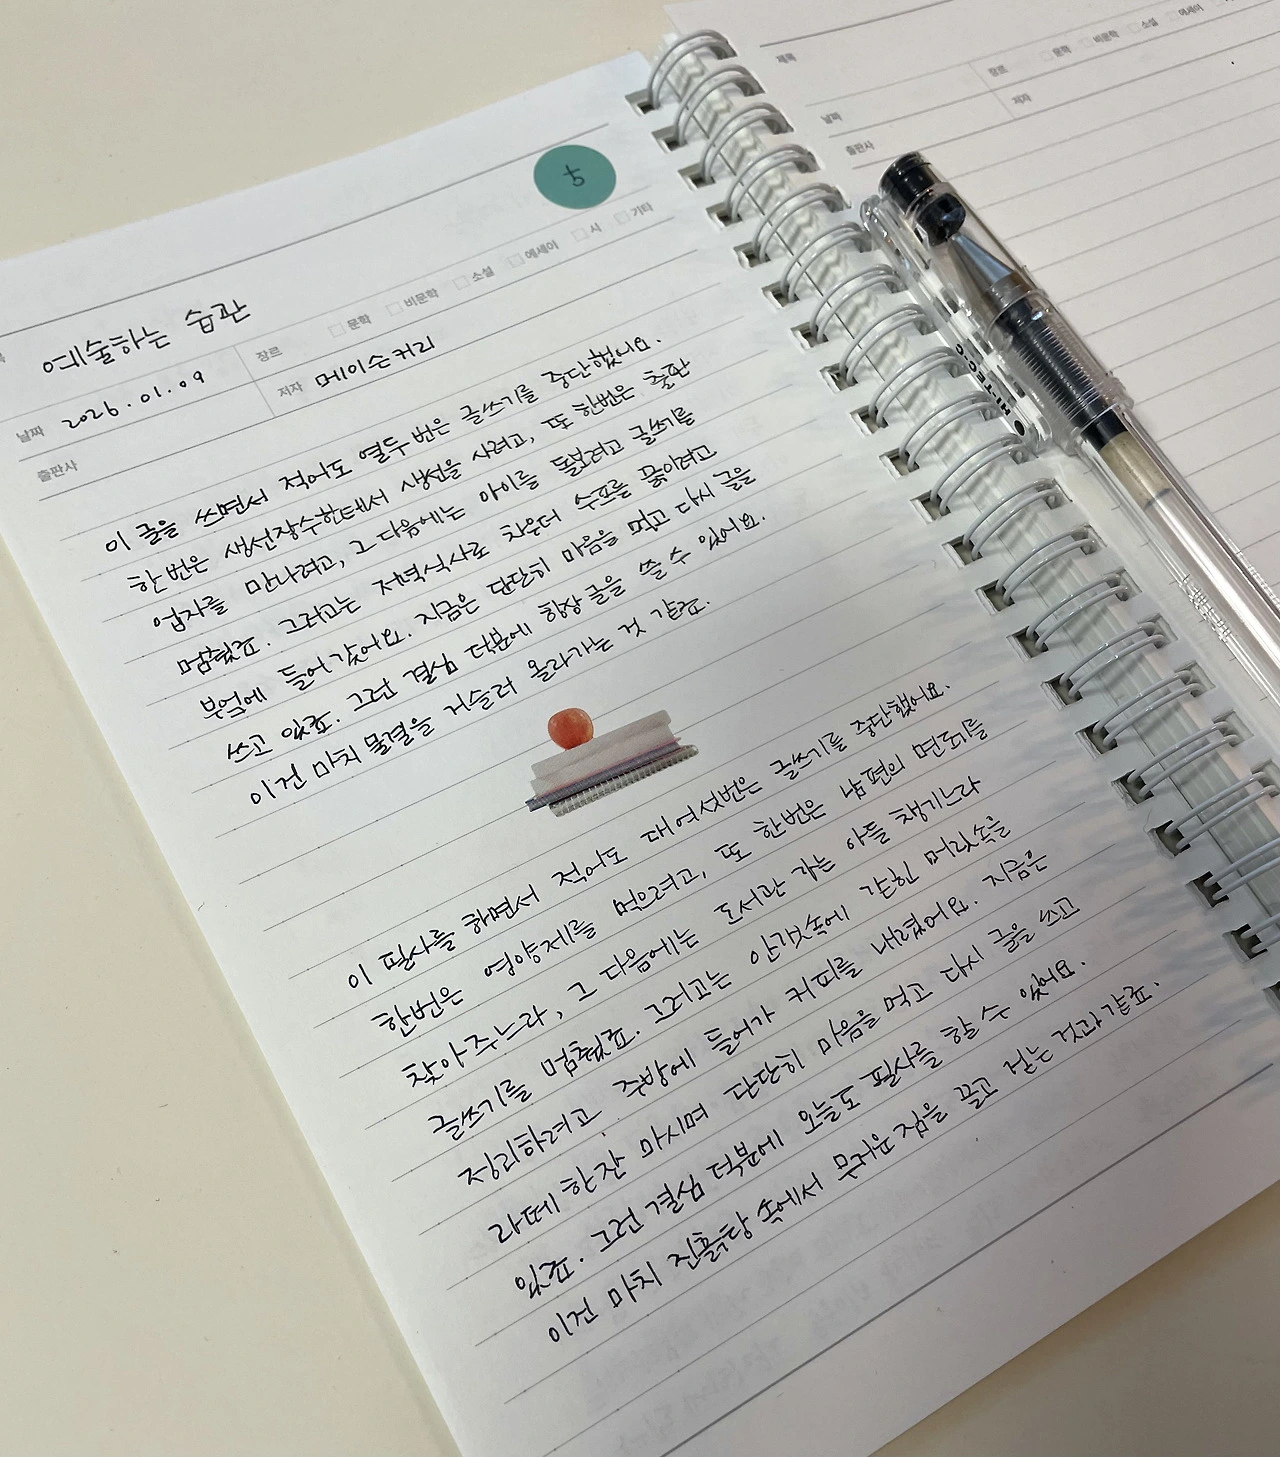 5
예술하는 습관
장르 문학 비문학 소설 에세이 시 기타
날짜 2026.01.09
저자 메이슨커리
출판사
이 글을 쓰면서 적어도 열두번은 글쓰기를 중단했어요.
한번은 생선장수한테서 생선을 사려고, 또 한번은 출판
업자를 만나려고, 그 다음에는 아이를 돌보려고 글쓰기를
멈췄죠. 그러고는 저녁식사로 차우더 수프를 끓이려고
부엌에 들어갔어요. 지금은 단단히 마음을 먹고 다시 글을
쓰고 있죠. 그런 결심 덕분에 항상 글을 쓸 수 있어요.
이건 마치 물결을 거슬러 올라가는 것 같죠.
이 필사를 하면서 적어도 대여섯번은 글쓰기를 중단했어요.
한번은 영양제를 먹으려고, 또 한번은 남편의 면도기를
찾아주느라, 그 다음에는 도서관 가는 아들 챙기느라
글쓰기를 멈췄죠. 그러고는 안갯속에 갇힌 머릿속을
정리하려고 주방에 들어가 커피를 내렸어요. 지금은
라떼 한잔 마시며 단단히 마음을 먹고 다시 글을 쓰고
있죠. 그런 결심 덕분에 오늘도 필사를 할 수 있어요.
이건 마치 진흙탕 속에서 무거운 짐을 끌고 걷는 것과 같죠.
제목
장르 문학 비문학 소설 에세이
날짜
저자
출판사
HI-TEC-C